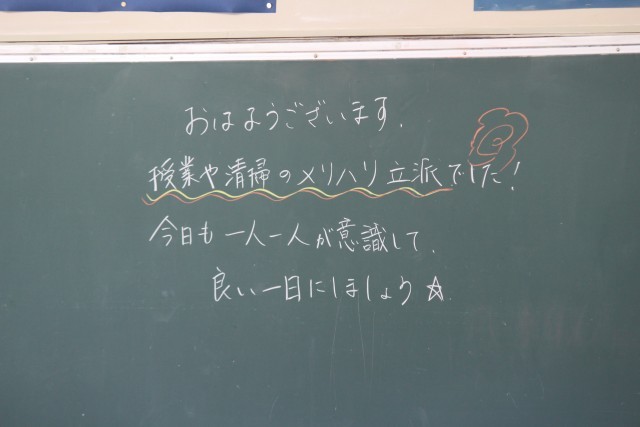 おはようございます.
授業や清掃のメリハリ立派でした!
今日も一人一人が意識して.
良い一日にしましょう☆